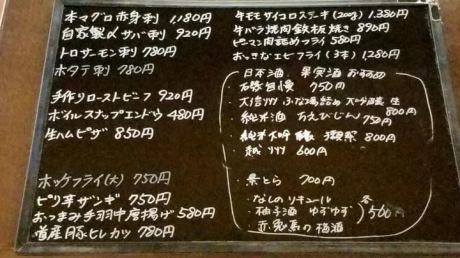 本マグロ赤身刺 1,180円
自家製〆サバ刺 920円
トロサーモン刺 780円
ホタテ刺 780円
手作りローストビーフ 920円
ボイルスナップエンドウ 480円
生ハムピザ 850円
ホッケフライ(大) 750円
ピリ辛ザンギ 750円
おつまみ手羽中唐揚げ 580円
道産豚ヒレカツ 780円
牛モモサイコロステーキ(200g) 1,380円
牛バラ焼肉鉄板焼き 890円
ピーマン肉詰めフライ 580円
おっきなエビフライ(3本) 1280円
日本酒 果実酒 おすすめ
自慢 750円
大信州 生 800円
純米酒 ちえびじん 750円
純米大吟醸 800円
越州 600円
黒とら 700円
なしのリキュール
柚子酒 ゆずゆず
赤兎馬の梅酒
各500円